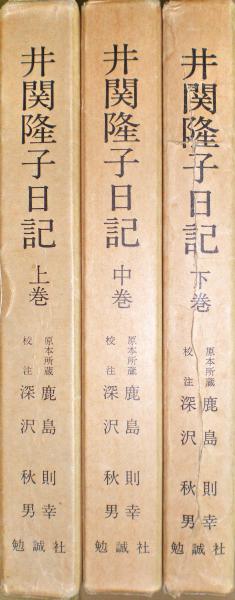 井関隆子日記
上巻
原本所蔵 鹿島則幸
校注 深沢秋男
勉誠社
井関隆子日記
中巻
原本所蔵 鹿島則幸
校注 深沢秋男
勉誠社
井関隆子日記
下巻
原本所蔵 鹿島則幸
校注 深沢秋男
勉誠社